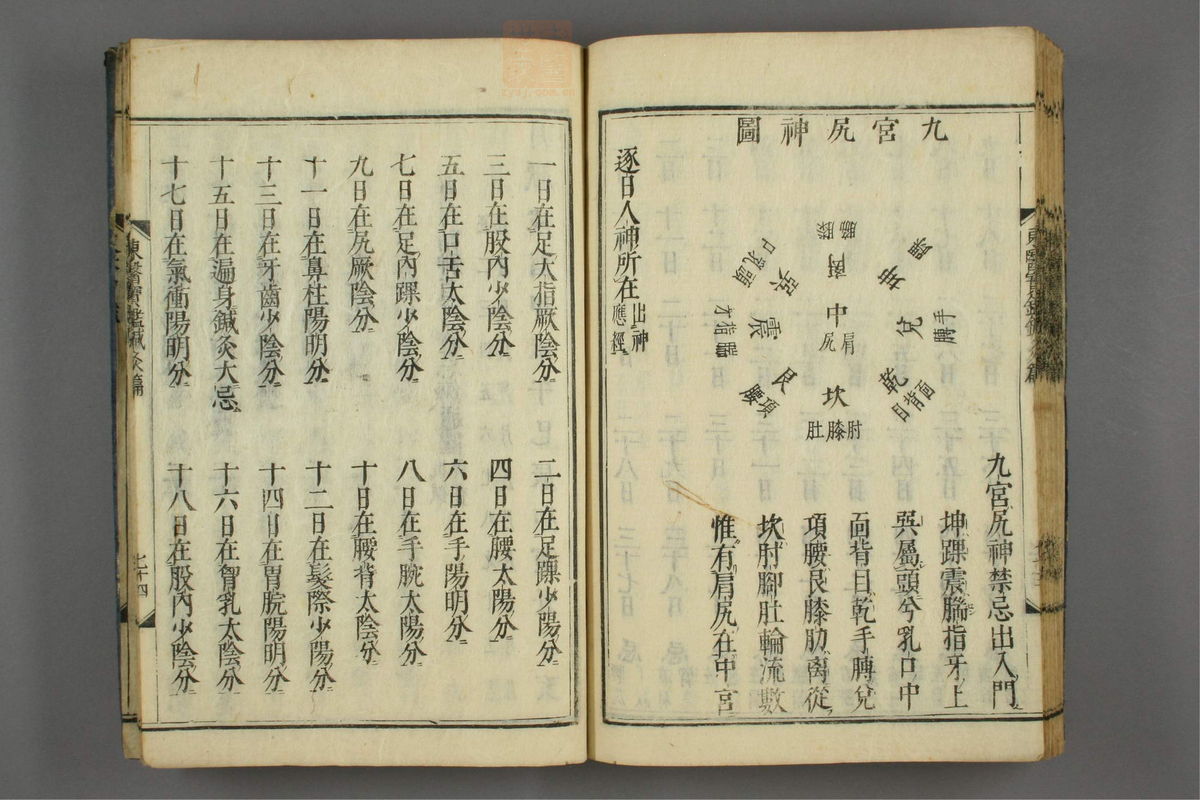 九宮尻神圖
坤踝
兌手膊
乾面背目
坎肘膝肚
中肩尻
離膝腨
艮項腰
震牙指腨
巽口乳頭
九宮尻神禁忌出入門
坤踝震腨指牙上
巽屬頭兮乳口中
面背目乾手膊兌
項腰艮膝肋离從
坎肘腳肚輪流數
惟有肩尻在中宮
逐日人神所在出神應經
一日在足大指厥陰分 二日在足踝少陽分
三日在股內少陰分 四日在腰太陽分
五日在口舌太陰分 六日在手陽明分
七日在足內踝少陰分 八日在手腕太陽分
九日在尻厥陰分 十日在腰背太陰分
十一日在鼻柱陽明分 十二日在髮際少陽分
十三日在牙齒少陰分 十四日在胃脘陽明分
十五日在遍身鍼灸大忌 十六日在胷乳太陰分
十七日在氣衝陽明分 十八日在股內少陰分
東醫寶鑑鍼灸篇
七十四